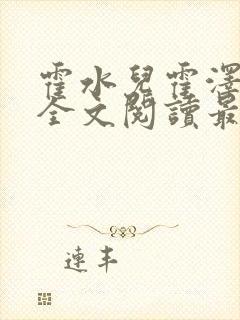 霍水兒霍澤
全文閱讀最
連丰